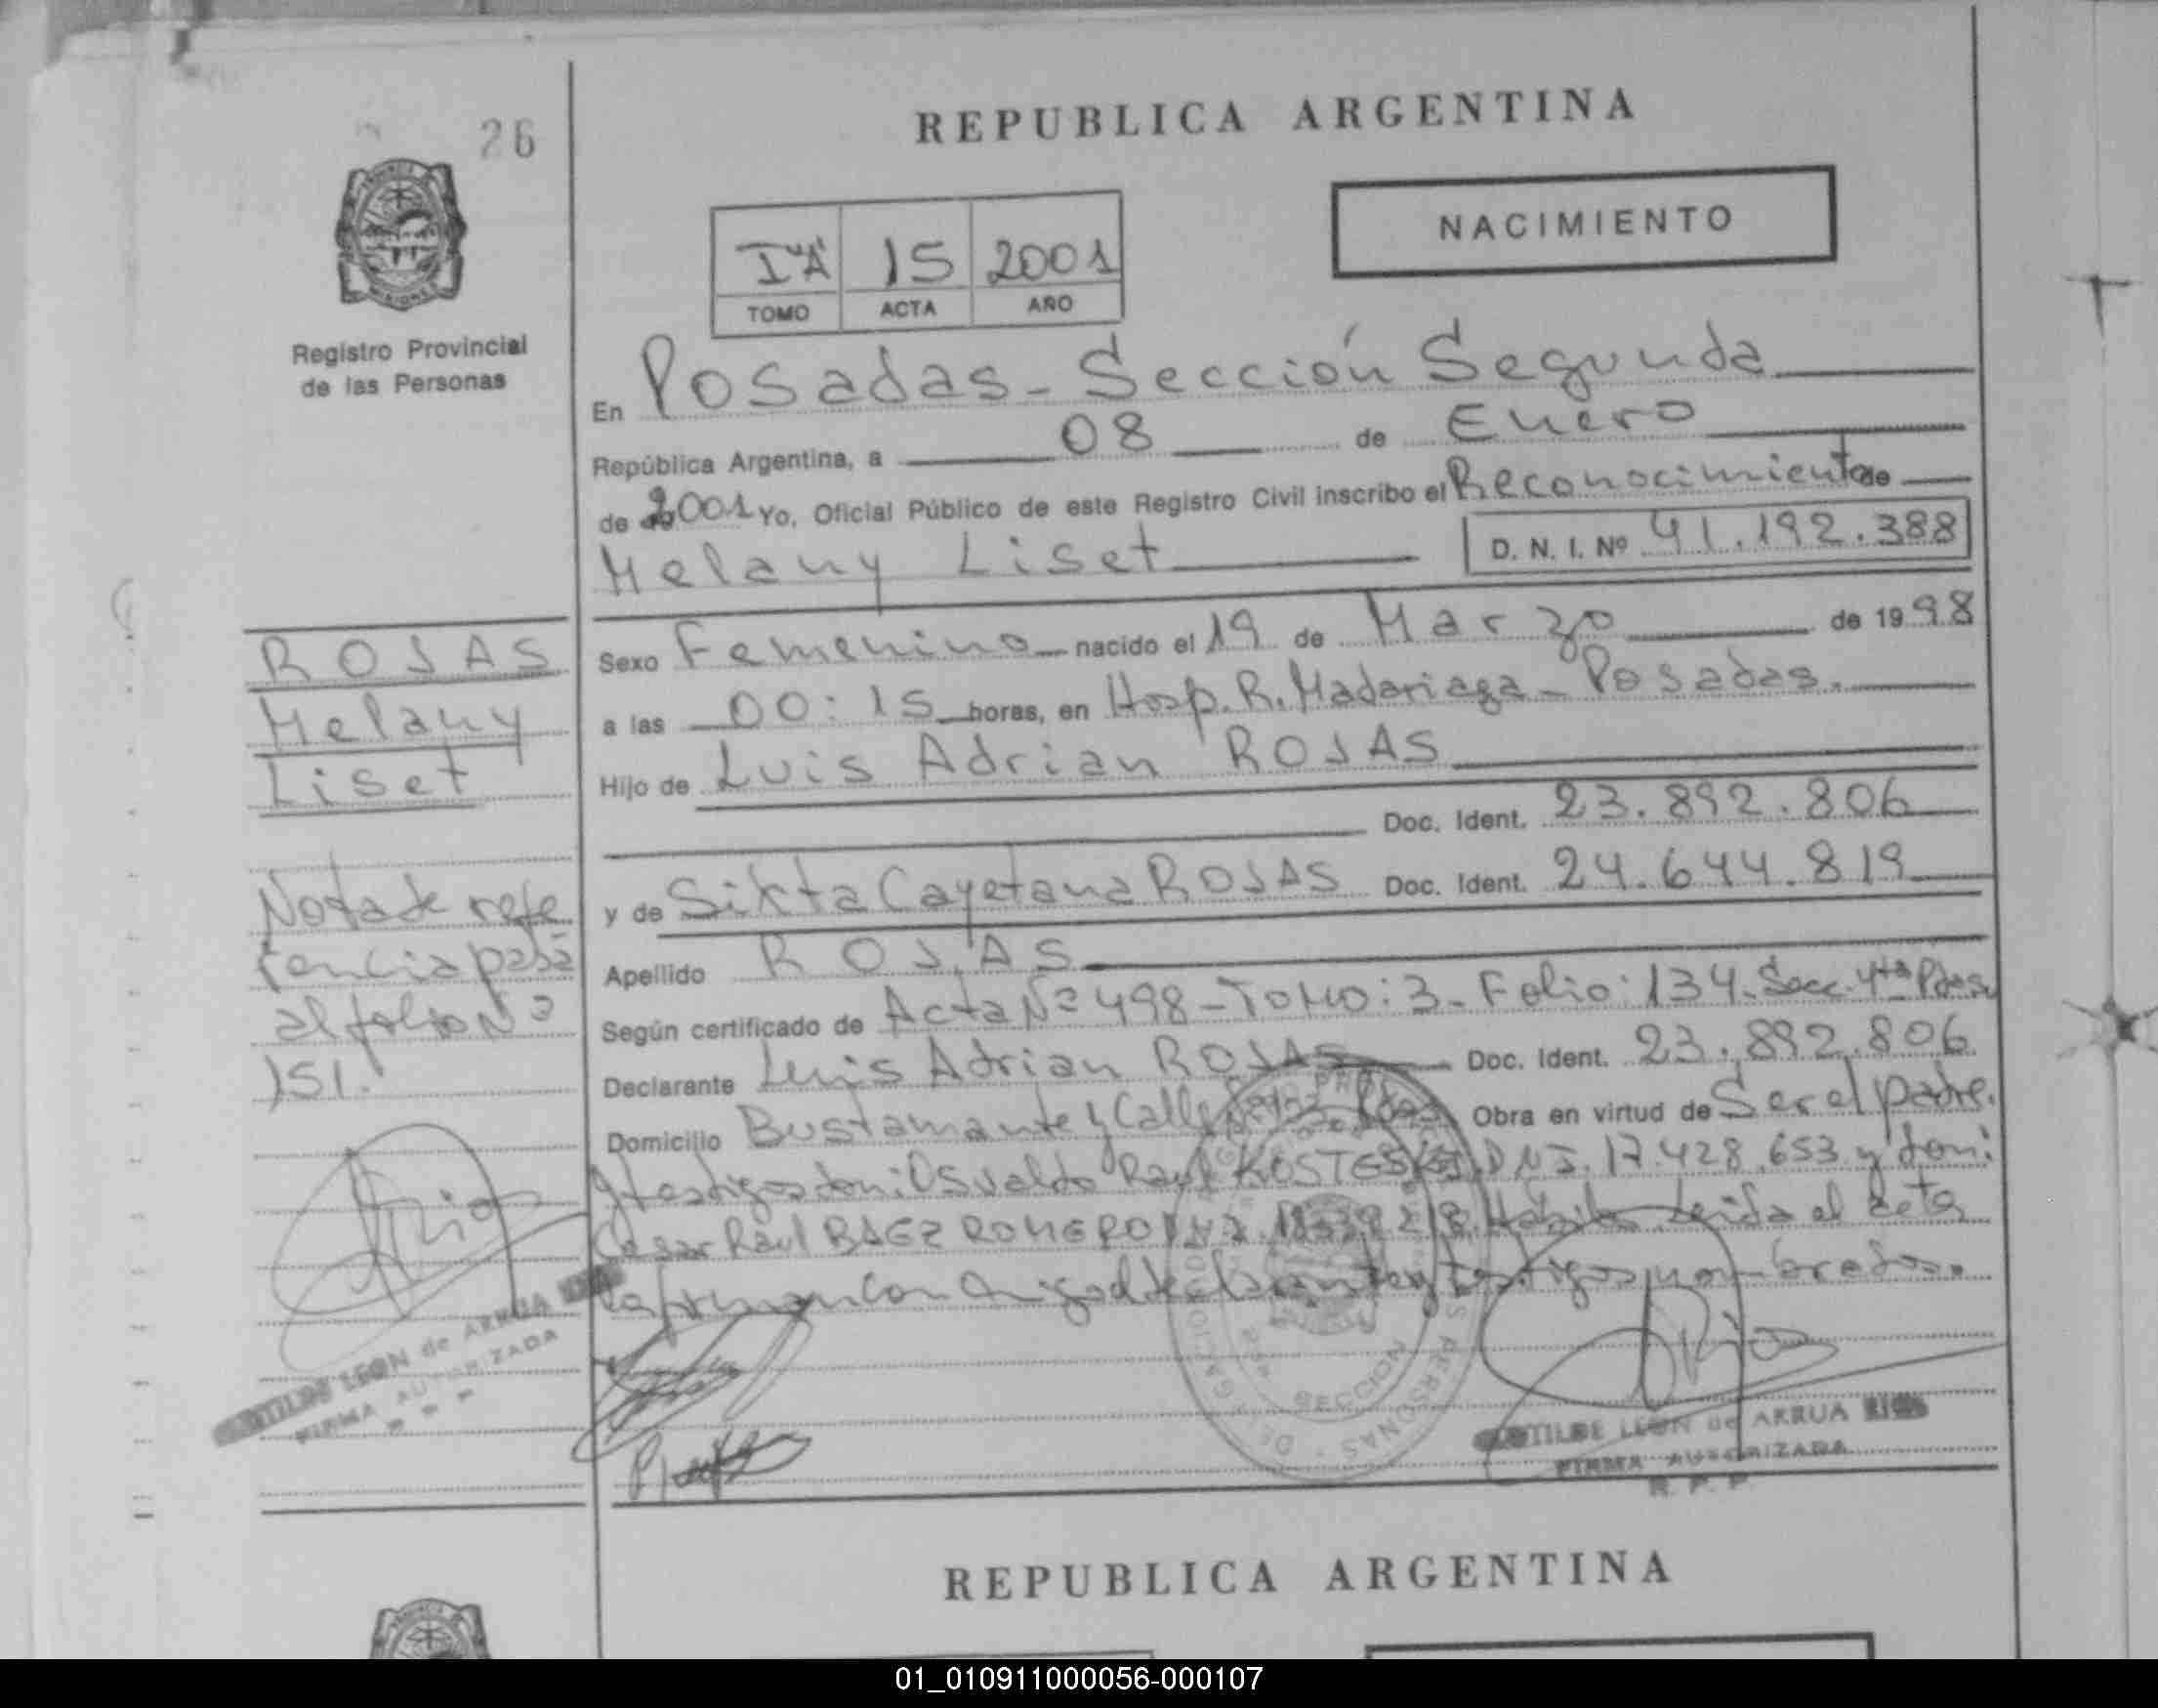 26
REPUBLICA ARGENTINA
NACIMIENTO
I "A" 15 2001
TOMO ACTA AÑO
Registro Provincial
de las Personas
En Posadas - Sección Segunda
República Argentina, a 08 de Enero
de 2001 Yo, Oficial Público de este Registro Civil inscribo el Reconocimiento de
Melany Liset D. N. I. Nº 41.192.388
Sexo Femenino nacido el 19 de Marzo de 1998
a las 00:15 horas, en Hosp. R. Madariaga - Posadas.
Hijo de Luis Adrian ROJAS
Doc. Ident. 23.892.806
y de Sixta Cayetana ROJAS Doc. Ident. 24.644.819
Apellido ROJAS
Según certificado de Acta Nº 498 - TOMO: 3 - Folio: 134. Secc. 4ta Pdas.
Declarante Luis Adrian ROJAS Doc. Ident. 23.892.806
Domicilio Bustamante y Calle Obra en virtud de Ser el padre.
y testigos don: Osvaldo Raul D.N.I. 17.428.653 y don:
Cesar Raul BAEZ ROMERO leida el acta
la firman con migo el declarante y testigos nombrados.
ROJAS
Melany
Liset
Nota de refe
rencia pasa
al folio Nº
151.
LEON de ARRUA
FIRMA AUTORIZADA
SECCION
PERSONAS
LEON de ARRUA RIOS
FIRMA AUTORIZADA
R. P. P.
REPUBLICA ARGENTINA
01_010911000056-000107